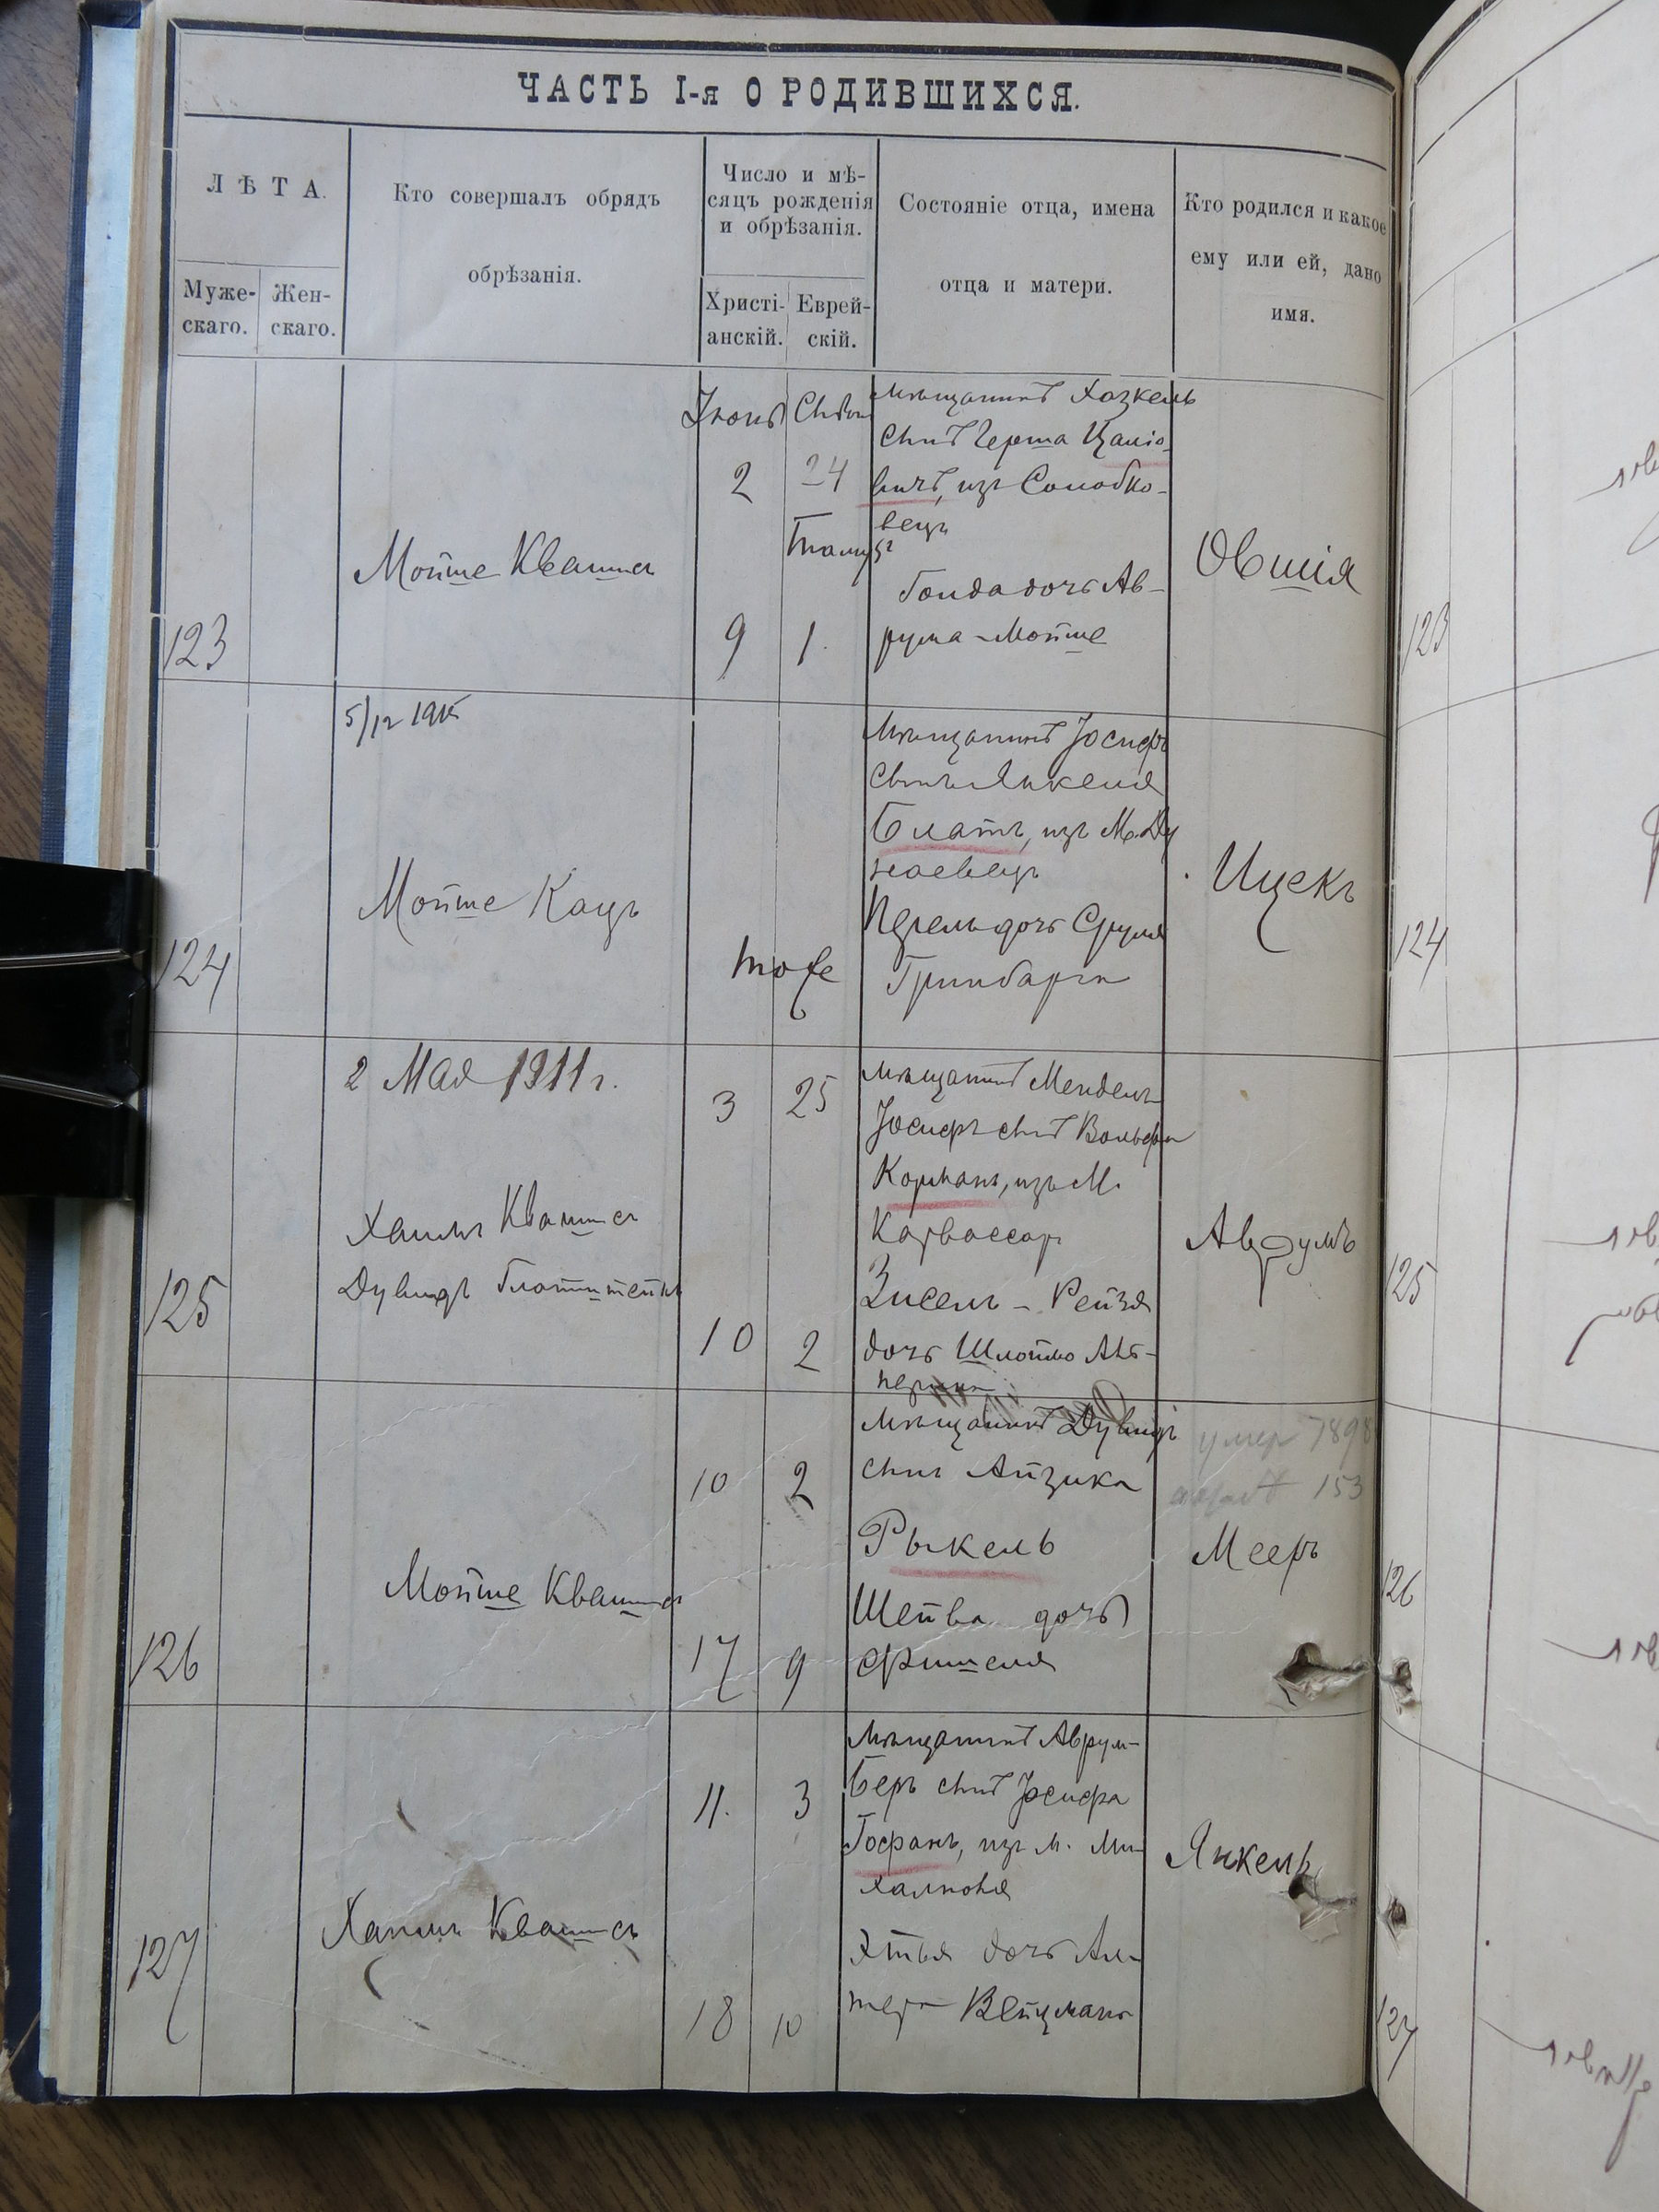 ЧАСТЬ I-я О РОДИВШИХСЯ.
ЛѢТА.
Муже-
скаго.
Жен-
скаго.
Кто совершалъ обрядъ
обрѣзанія.
Число и мѣ-
сяцъ рожденія
и обрѣзанія.
Христі-
анскій.
Еврей-
скій.
Состояніе отца, имена
отца и матери.
Кто родился и какое
ему или ей, дано
имя.
123
Мойше Квашша
Іюнь
2
9
24
Тамуз
1.
мѣщанинъ Хазкель
сынъ Герша Цаліо-
вичъ, изъ Солобко-
вецъ
Голда дочь Ав-
рума-Мойше
Овшія
123
124
5/12 1915
Мойше Кацъ
тоже
мѣщанинъ Іосифъ
сынъ Янкеля
Блатъ, изъ М. Ду
наевецъ
Перель дочь Сруля
Гринбарга
Ицекъ
124
125
2 Мая 1911 г.
Хаимъ Квашша
Дувидъ
3 25
10 2
мѣщанинъ Мендель
Іосифъ сынъ Вольфа
Корманъ, изъ М.
Карвасаръ
Зисель - Рейзя
дочь Шлоймо Аль-
перина
Аврумъ
125
126
Мойше Квашша
10 2
17 9
мѣщанинъ Дувидъ
сынъ Айзика
Рыкель
Шейва дочь
Фишеля
умер 1898
153
Мееръ
126
127
Хаимъ Квашша
11. 3
18 10
мѣщанинъ Аврум-
Беръ сынъ Іосифа
Гофманъ, изъ м. Ми
халполя
Этья дочь Ал-
тера Вейцмана
Янкель
127